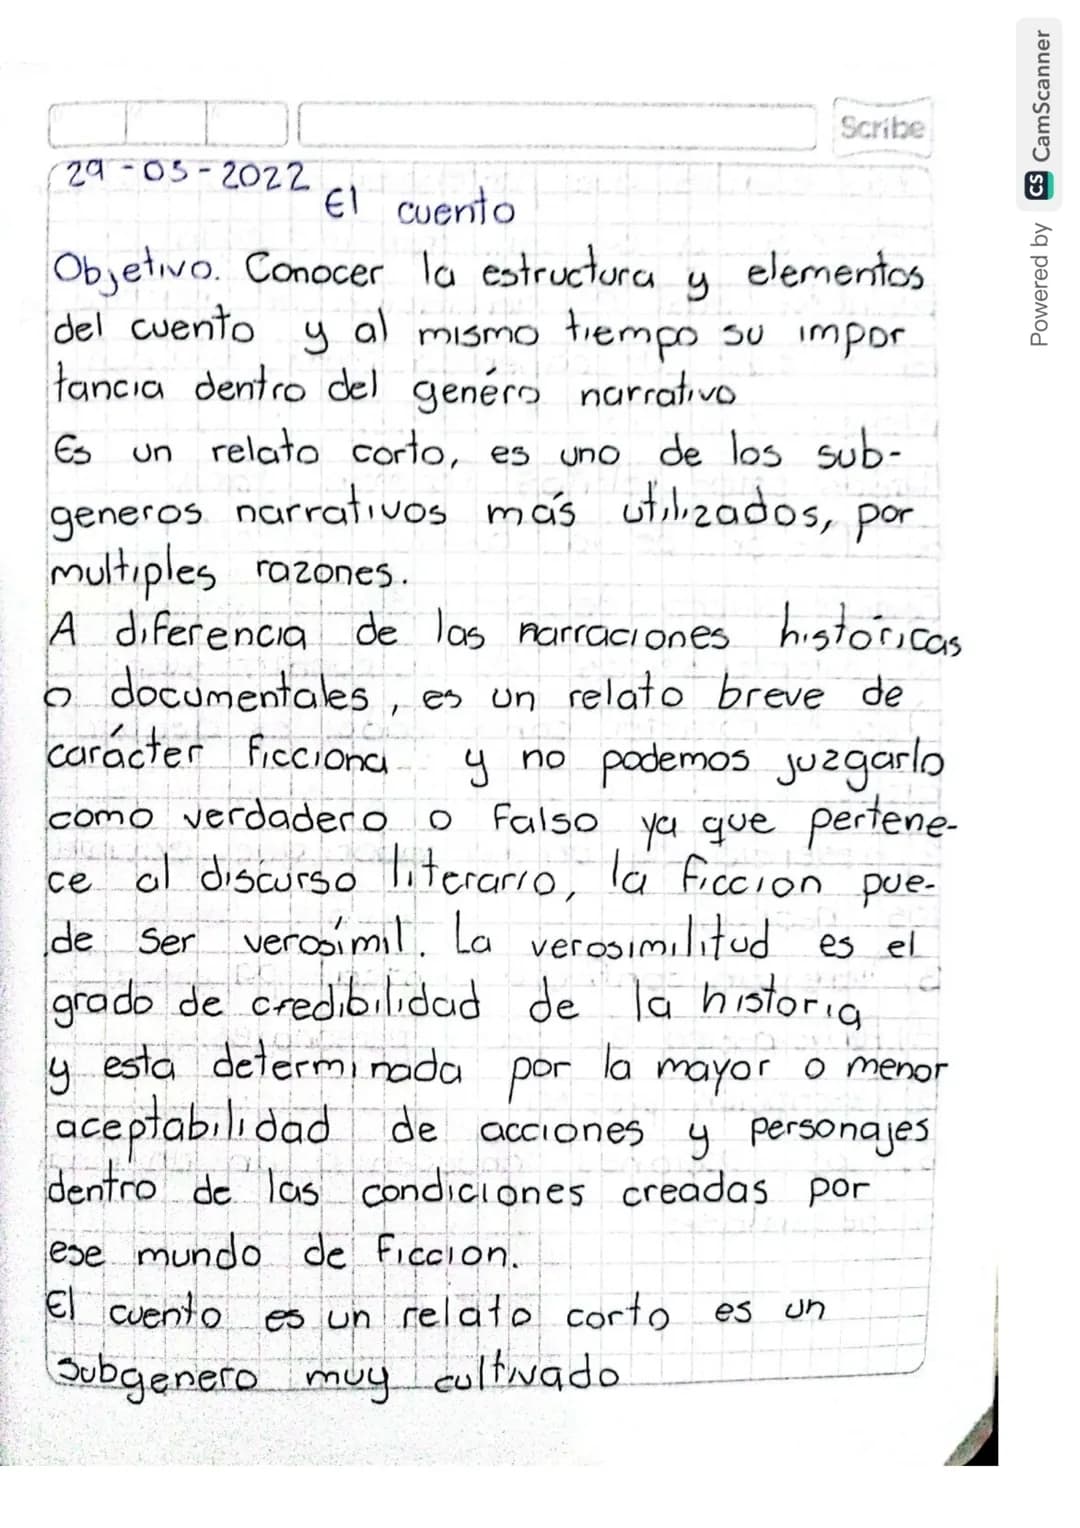 Scribe
29-05-2022
El cuento
Objetivo. Conocer la estructura y elementos
del cuento y al mismo tiempo su impor
tancia dentro del genéro narrativo
Es un relato corto, es uno de los sub-
generos narrativos más utilizados, por
multiples razones.
A diferencia de las narraciones historicas
o documentales, es un relato breve de
carácter ficciona y no podemos juzgarlo
como verdadero o falso ya que pertene-
ce al discurso literario, la ficcion pue-
de ser verosímil. La verosimilitud es el
grado de credibilidad de la historia
y esta determinada por la mayor o menor
aceptabilidad de acciones y personajes
dentro de las condiciones creadas por
ese mundo de ficcion.
El cuento es un relato corto es un
subgenero muy cultivado
Powered by CS CamScanner